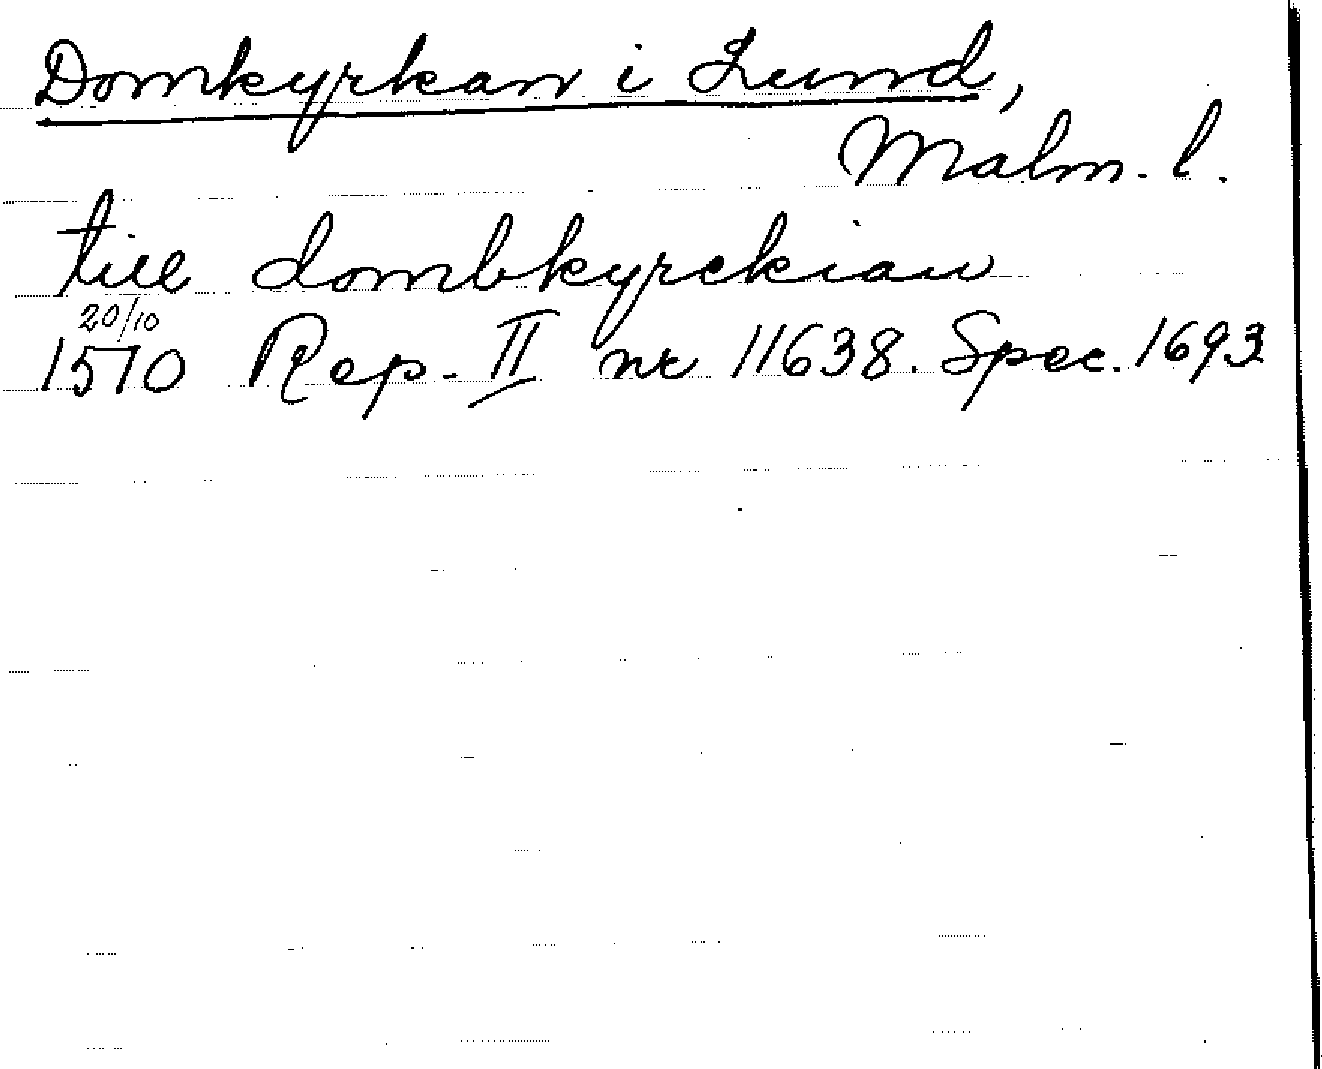 Domkyrkan i Lund,
Malm. l.
till dombkyrckian
20/10
1510 Rep. II nr 11638. Spec. 1693